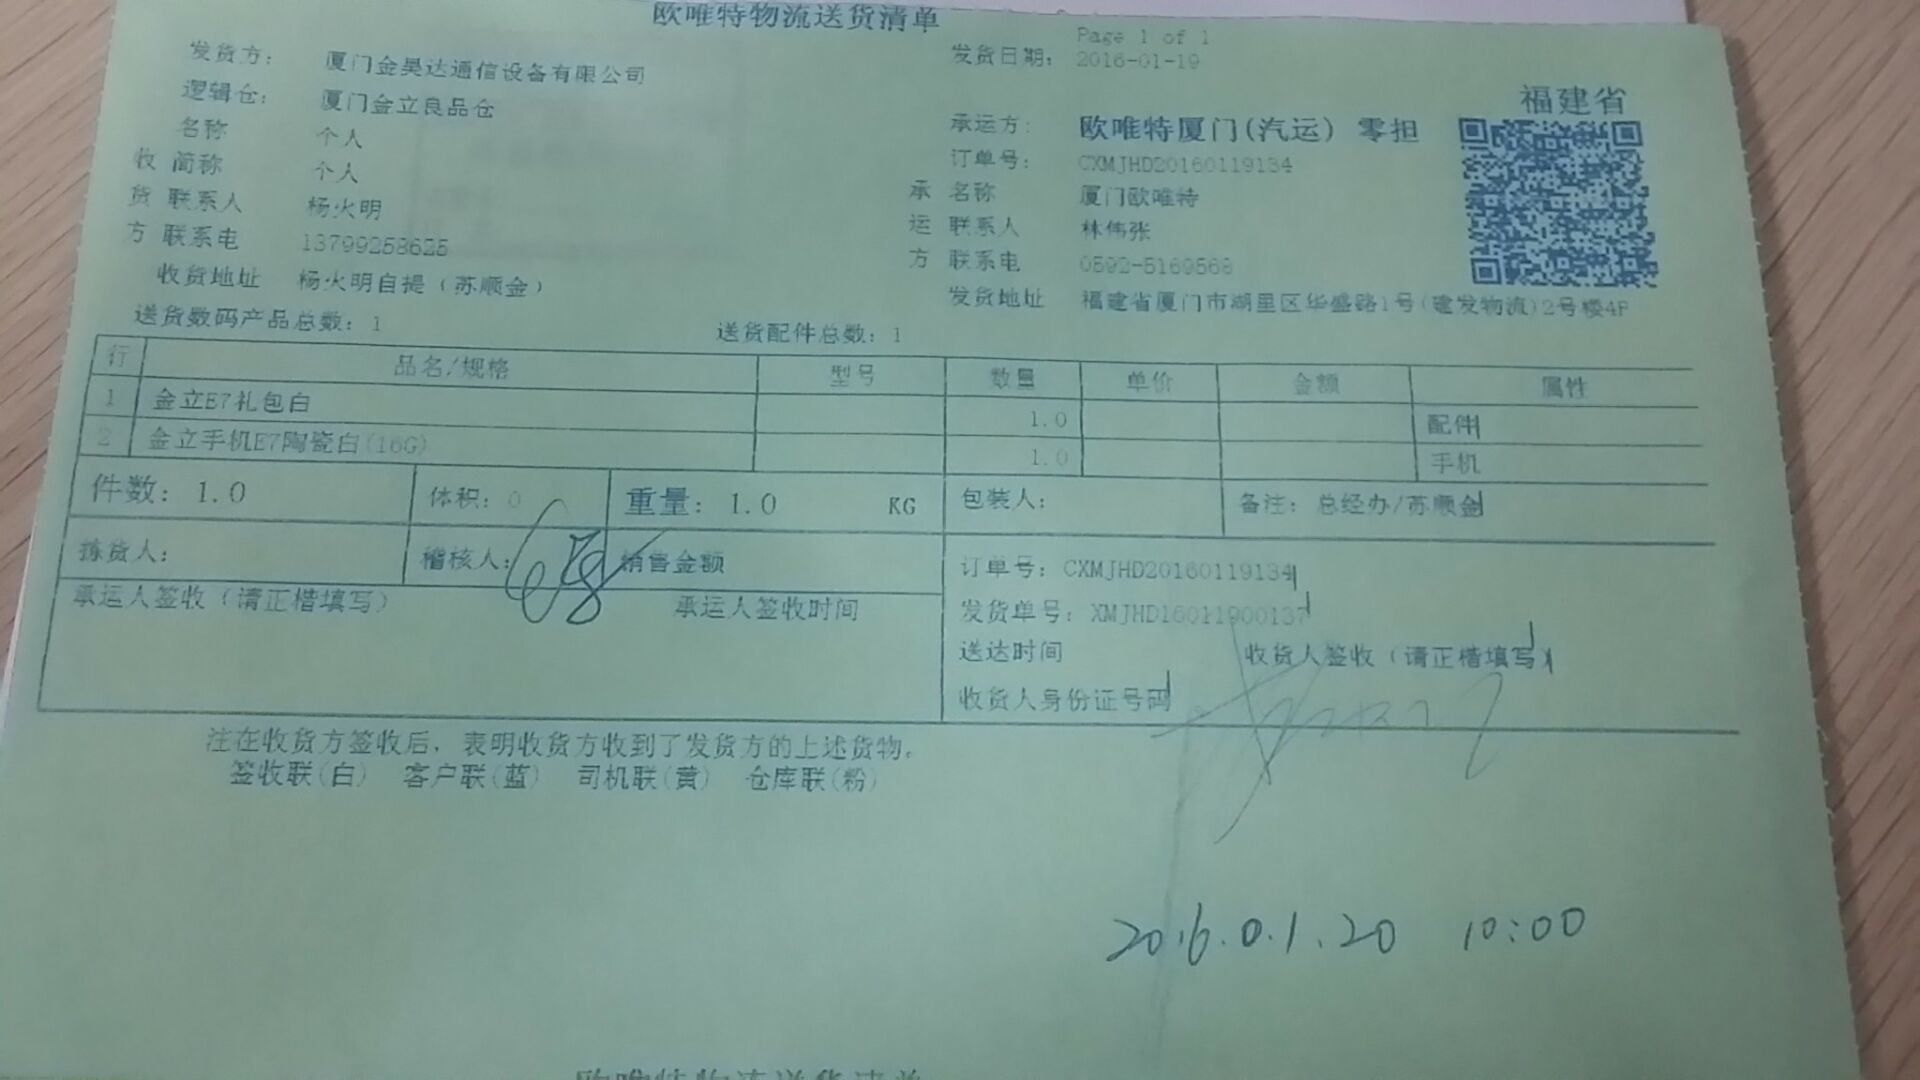 欧唯特物流送货清单
Page 1 of 1
发货方： 厦门金昊达通信设备有限公司 发货日期： 2016-01-19
逻辑仓： 厦门金立良品仓
福建省
名称 个人 承运方： 欧唯特厦门(汽运) 零担
收 简称 个人 订单号： CXMJHD20160119134
货 联系人 杨火明 承 名称 厦门欧唯特
方 联系电 13799258625 运 联系人 林伟张
收货地址 杨火明自提（苏顺金） 方 联系电 0592-5169568
发货地址 福建省厦门市湖里区华盛路1号(建发物流)2号楼4F
送货数码产品总数：1 送货配件总数：1
行 品名/规格 型号 数量 单价 金额 属性
1 金立E7礼包白 1.0 配件
2 金立手机E7陶瓷白(16G) 1.0 手机
件数：1.0 体积：0 重量：1.0 KG 包装人： 备注：总经办/苏顺金
拣货人： 稽核人： 68 销售金额 订单号：CXMJHD20160119134
承运人签收（请正楷填写） 承运人签收时间 发货单号：XMJHD16011900137
送达时间 收货人签收（请正楷填写）
收货人身份证号码
注在收货方签收后，表明收货方收到了发货方的上述货物。
签收联(白) 客户联(蓝) 司机联(黄) 仓库联(粉)
2016.01.20 10:00
欧唯特物流送货清单